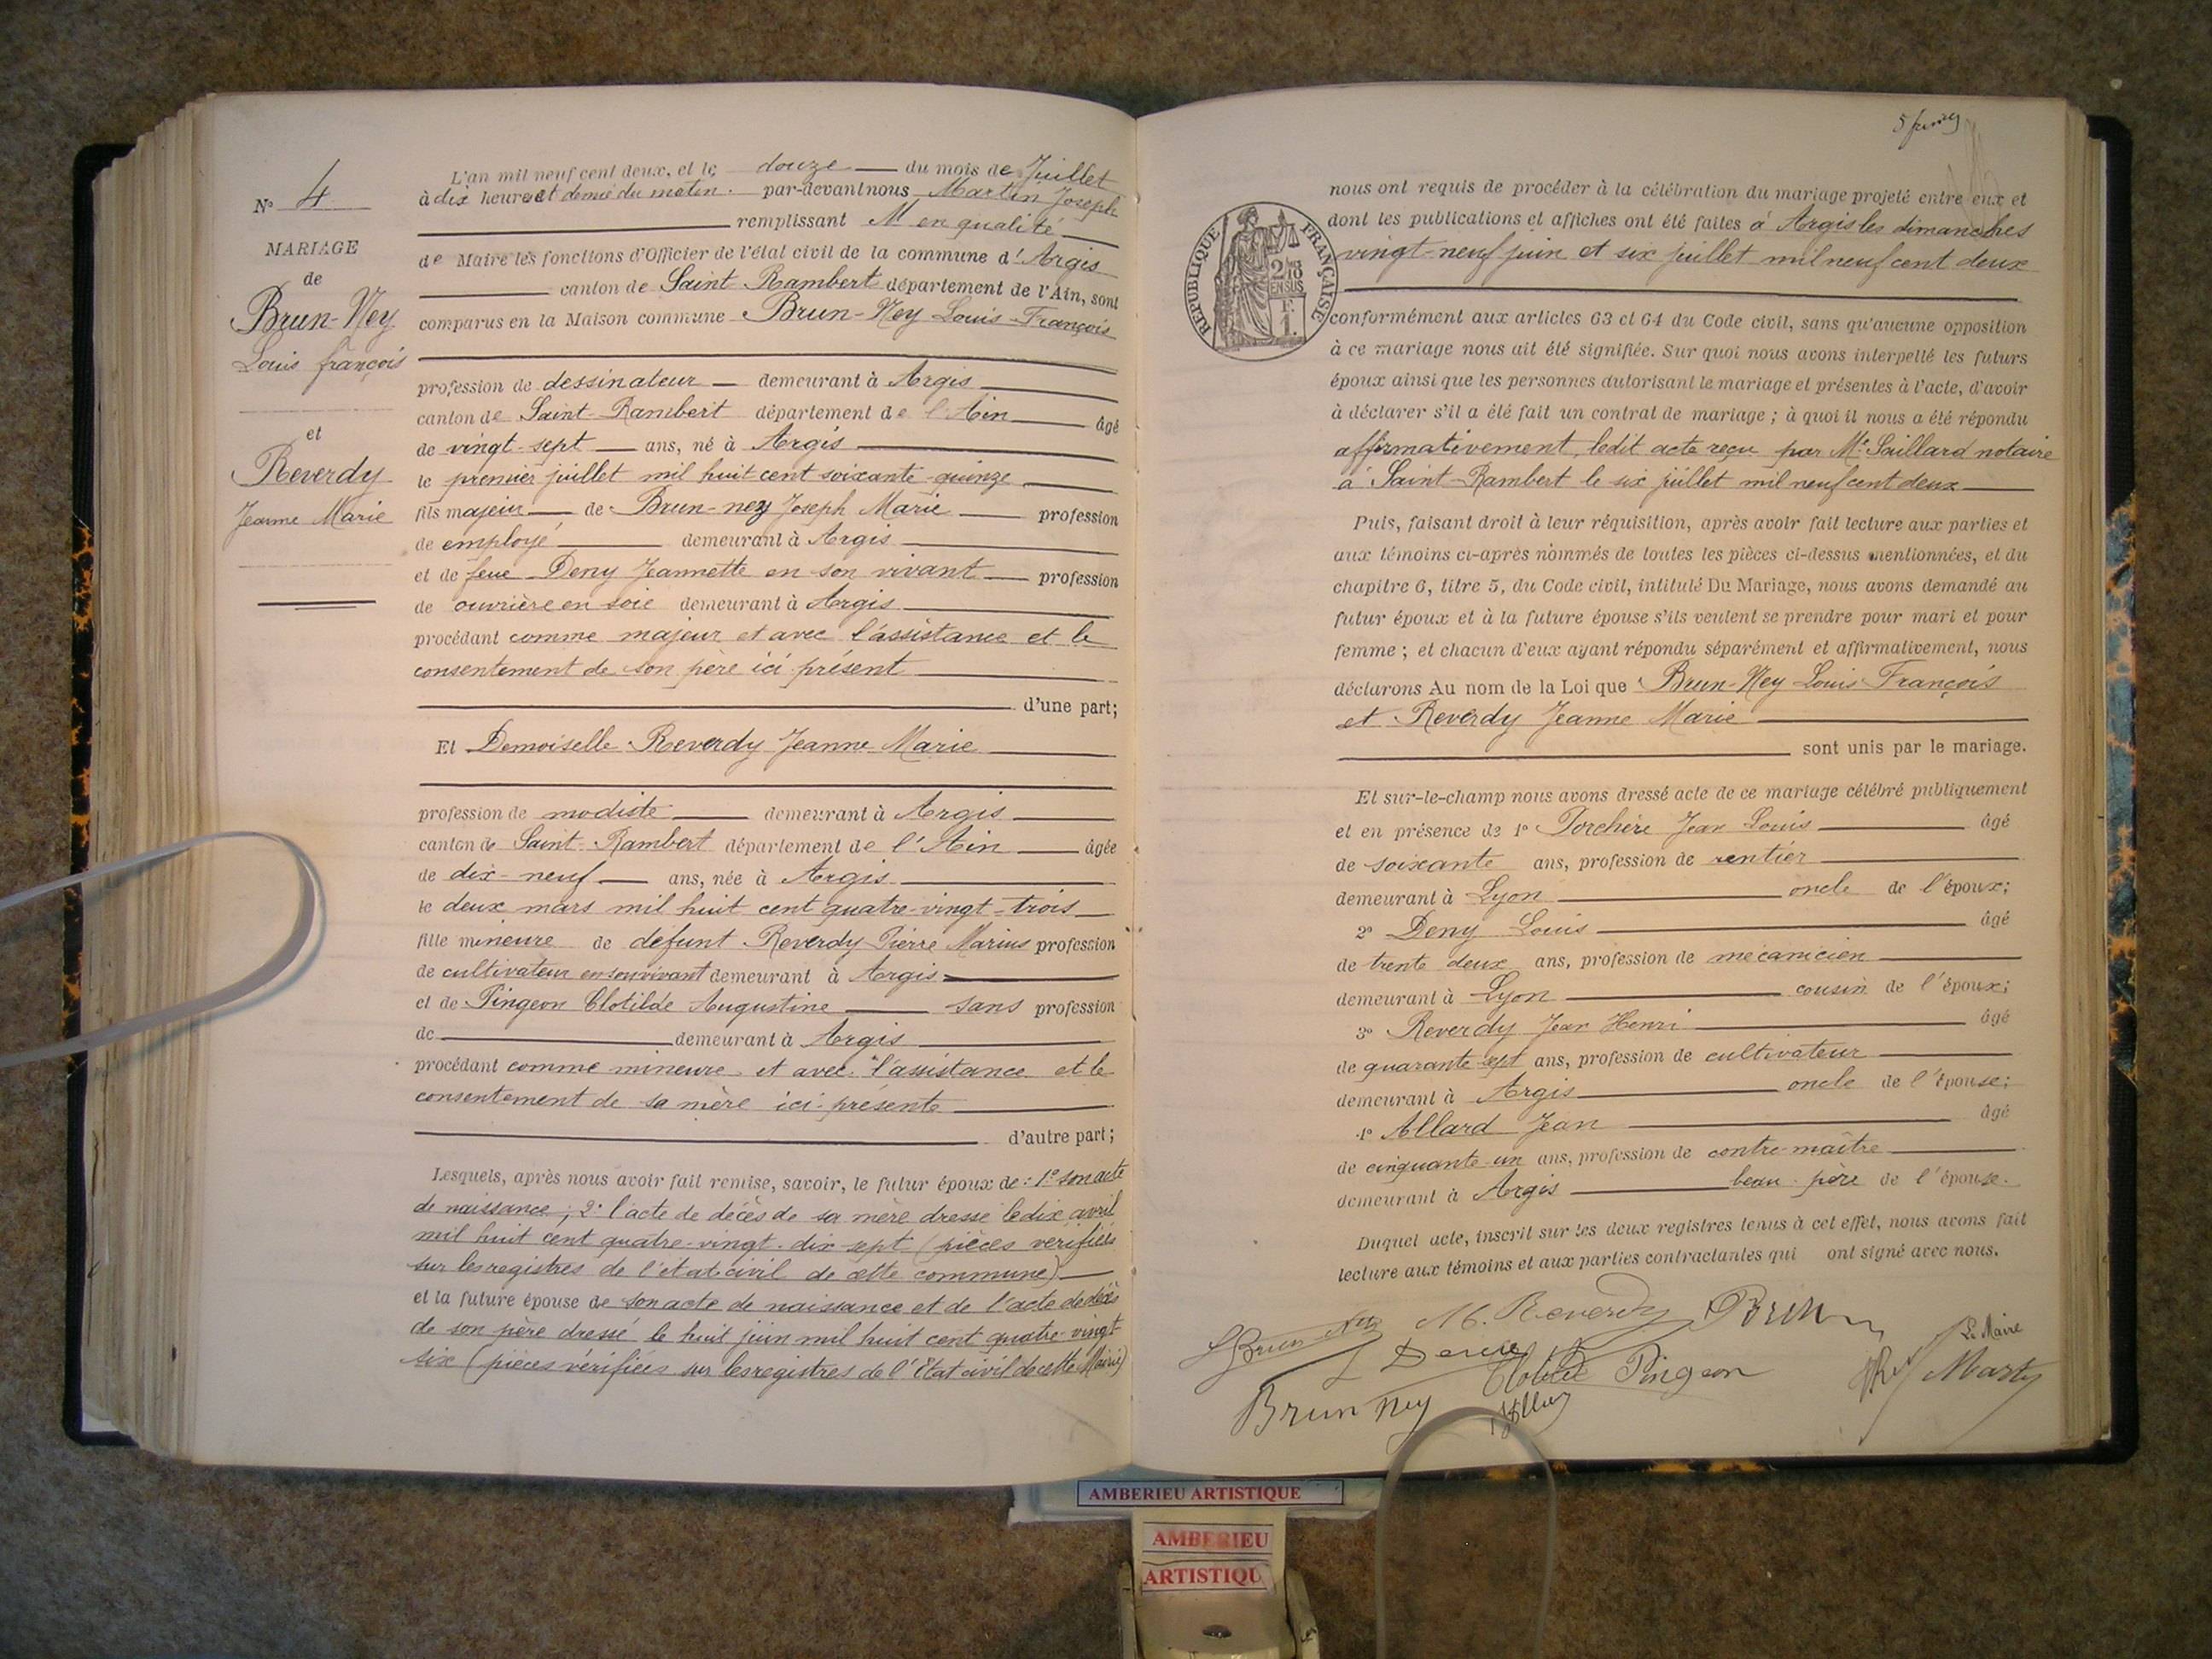 N° 4
MARIAGE
de
Brun-Ney
Louis françois
et
Reverdy
Jeanne Marie
L'an mil neuf cent deux, et le douze du mois de Juillet
à dix heures et demie du matin par-devant nous Martin Joseph
remplissant en qualité
de Maire les fonctions d'Officier de l'état civil de la commune d'Argis
canton de Saint-Rambert département de l'Ain, sont
comparus en la Maison commune Brun-Ney Louis-François
profession de dessinateur demeurant à Argis
canton de Saint-Rambert département de l'Ain âgé
de vingt-sept ans, né à Argis
le premier juillet mil huit cent soixante-quinze
fils majeur de Brun-ney Joseph Marie profession
de employé demeurant à Argis
et de feue Deny Jeannette en son vivant profession
de ouvrière en soie demeurant à Argis
procédant comme majeur et avec l'assistance et le
consentement de son père ici présent
d'une part;
Et Demoiselle Reverdy Jeanne Marie
profession de modiste demeurant à Argis
canton de Saint-Rambert département de l'Ain âgée
de dix-neuf ans, née à Argis
le deux mars mil huit cent quatre-vingt-trois
fille mineure de défunt Reverdy Pierre Marius profession
de cultivateur en son vivant demeurant à Argis
et de Pingeon Clotilde Augustine sans profession
de demeurant à Argis
procédant comme mineure et avec l'assistance et le
consentement de sa mère ici présente
d'autre part;
Lesquels, après nous avoir fait remise, savoir, le futur époux de : 1° son acte
de naissance; 2° l'acte de décès de sa mère dressé le dix avril
mil huit cent quatre-vingt-dix-sept (pièces vérifiées
sur les registres de l'état civil de cette commune)
et la future épouse de son acte de naissance et de l'acte de décès
de son père dressé le huit juin mil huit cent quatre-vingt
six (pièces vérifiées sur les registres de l'Etat civil de cette Mairie)
RÉPUBLIQUE FRANÇAISE
2/10
EN SUS
F.
1.
nous ont requis de procéder à la célébration du mariage projeté entre eux et
dont les publications et affiches ont été faites à Argis les dimanches
vingt-neuf juin et six juillet mil neuf cent deux
conformément aux articles 63 et 64 du Code civil, sans qu'aucune opposition
à ce mariage nous ait été signifiée. Sur quoi nous avons interpellé les futurs
époux ainsi que les personnes autorisant le mariage et présentes à l'acte, d'avoir
à déclarer s'il a été fait un contrat de mariage ; à quoi il nous a été répondu
affirmativement, ledit acte reçu par Me Saillard notaire
à Saint-Rambert le six juillet mil neuf cent deux
Puis, faisant droit à leur réquisition, après avoir fait lecture aux parties et
aux témoins ci-après nommés de toutes les pièces ci-dessus mentionnées, et du
chapitre 6, titre 5, du Code civil, intitulé Du Mariage, nous avons demandé au
futur époux et à la future épouse s'ils veulent se prendre pour mari et pour
femme ; et chacun d'eux ayant répondu séparément et affirmativement, nous
déclarons Au nom de la Loi que Brun-Ney Louis François
et Reverdy Jeanne Marie
sont unis par le mariage.
Et sur-le-champ nous avons dressé acte de ce mariage célébré publiquement
et en présence de 1° Porchère Jean Louis âgé
de soixante ans, profession de rentier
demeurant à Lyon oncle de l'époux;
2° Deny Louis âgé
de trente deux ans, profession de mécanicien
demeurant à Lyon cousin de l'époux;
3° Reverdy Jean Henri âgé
de quarante sept ans, profession de cultivateur
demeurant à Argis oncle de l'épouse;
4° Allard Jean âgé
de cinquante-un ans, profession de contre-maître
demeurant à Argis beau-père de l'épouse.
Duquel acte, inscrit sur les deux registres tenus à cet effet, nous avons fait
lecture aux témoins et aux parties contractantes qui ont signé avec nous.
L Brun Ney M. Reverdy
Le Maire
Clotilde Pingeon
Brun Ney
AMBERIEU ARTISTIQUE
AMBERIEU
ARTISTIQU